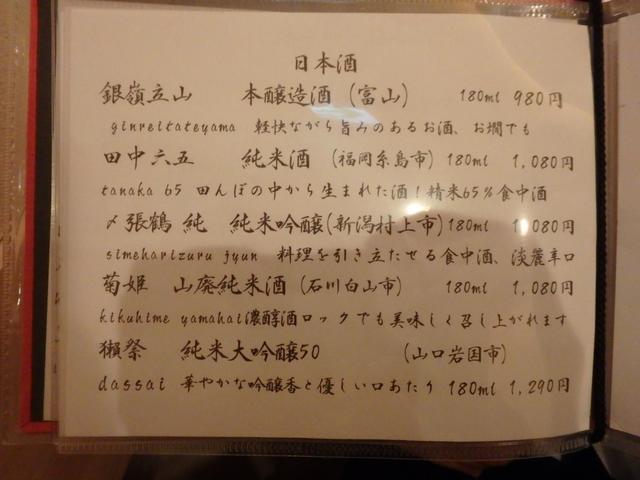 日本酒
銀嶺立山 本醸造酒 (富山) 180ml 980円
ginreitateyama 軽快ながら旨みのあるお酒、お燗でも
田中六五 純米酒 (福岡糸島市) 180ml 1,080円
tanaka 65 田んぼの中から生まれた酒!精米65%食中酒
〆張鶴 純 純米吟醸(新潟村上市) 180ml 1,080円
simeharizuru jyun 料理を引き立たせる食中酒、淡麗辛口
菊姫 山廃純米酒 (石川白山市) 180ml 1,080円
kikuhime yamahai濃醇酒ロックでも美味しく召し上がれます
獺祭 純米大吟醸50 (山口岩国市)
dassai 華やかな吟醸香と優しい口あたり 180ml 1,290円